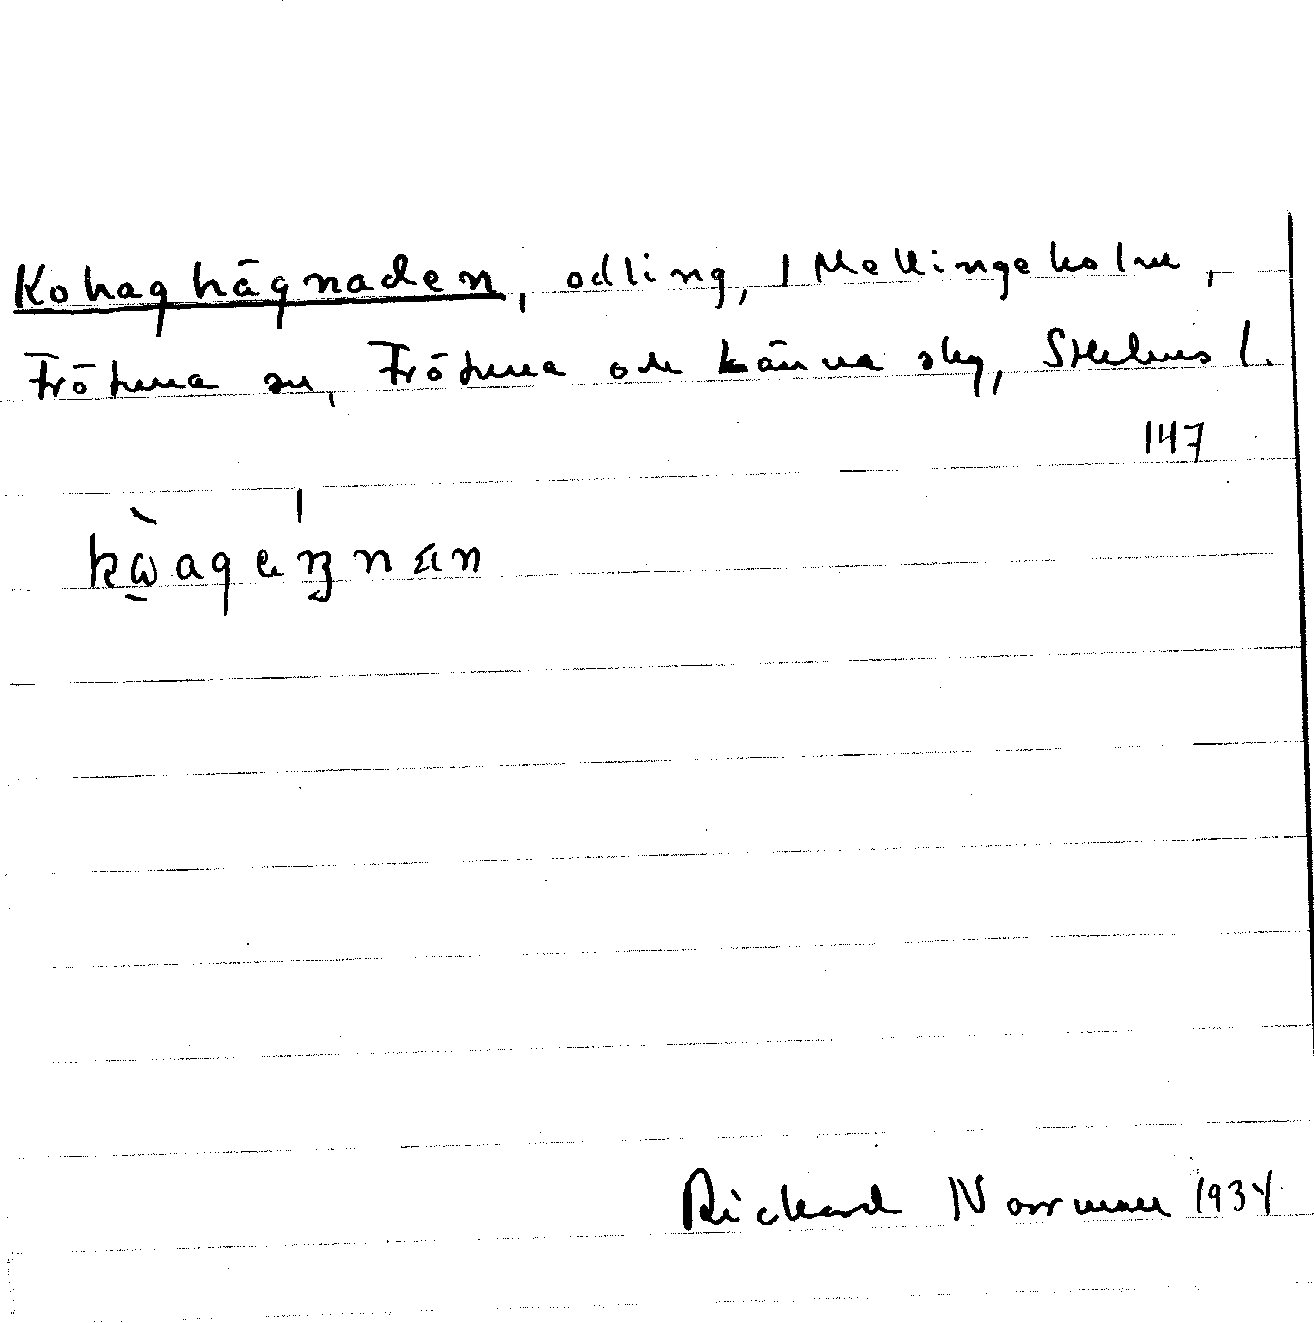 Kohaghägnaden, odling, 1 Mellingeholm,
Frötuna sn, Frötuna och Länna sky, Sthlms l.
147
Rickard Norrman 1934